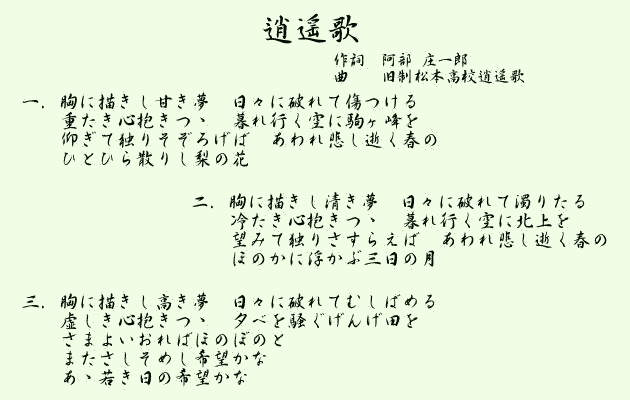 逍遥歌
作詞　阿部 庄一郎
曲　旧制松本高校逍遥歌
一．胸に描きし甘き夢　日々に破れて傷つける
重たき心抱きつゝ　暮れ行く空に駒ヶ峰を
仰ぎて独りそぞろげば　あわれ悲し逝く春の
ひとひら散りし梨の花
二．胸に描きし清き夢　日々に破れて濁りたる
冷たき心抱きつゝ　暮れ行く空に北上を
望みて独りさすらえば　あわれ悲し逝く春の
ほのかに浮かぶ三日の月
三．胸に描きし高き夢　日々に破れてむしばめる
虚しき心抱きつゝ　夕べを騒ぐげんげ田を
さまよいおればほのぼのと
またさしそめし希望かな
あゝ若き日の希望かな